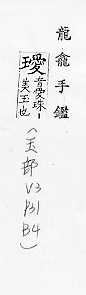 龍龕手鑑
璦音愛珠-
美玉也
(玉部
V3
P31
B4)